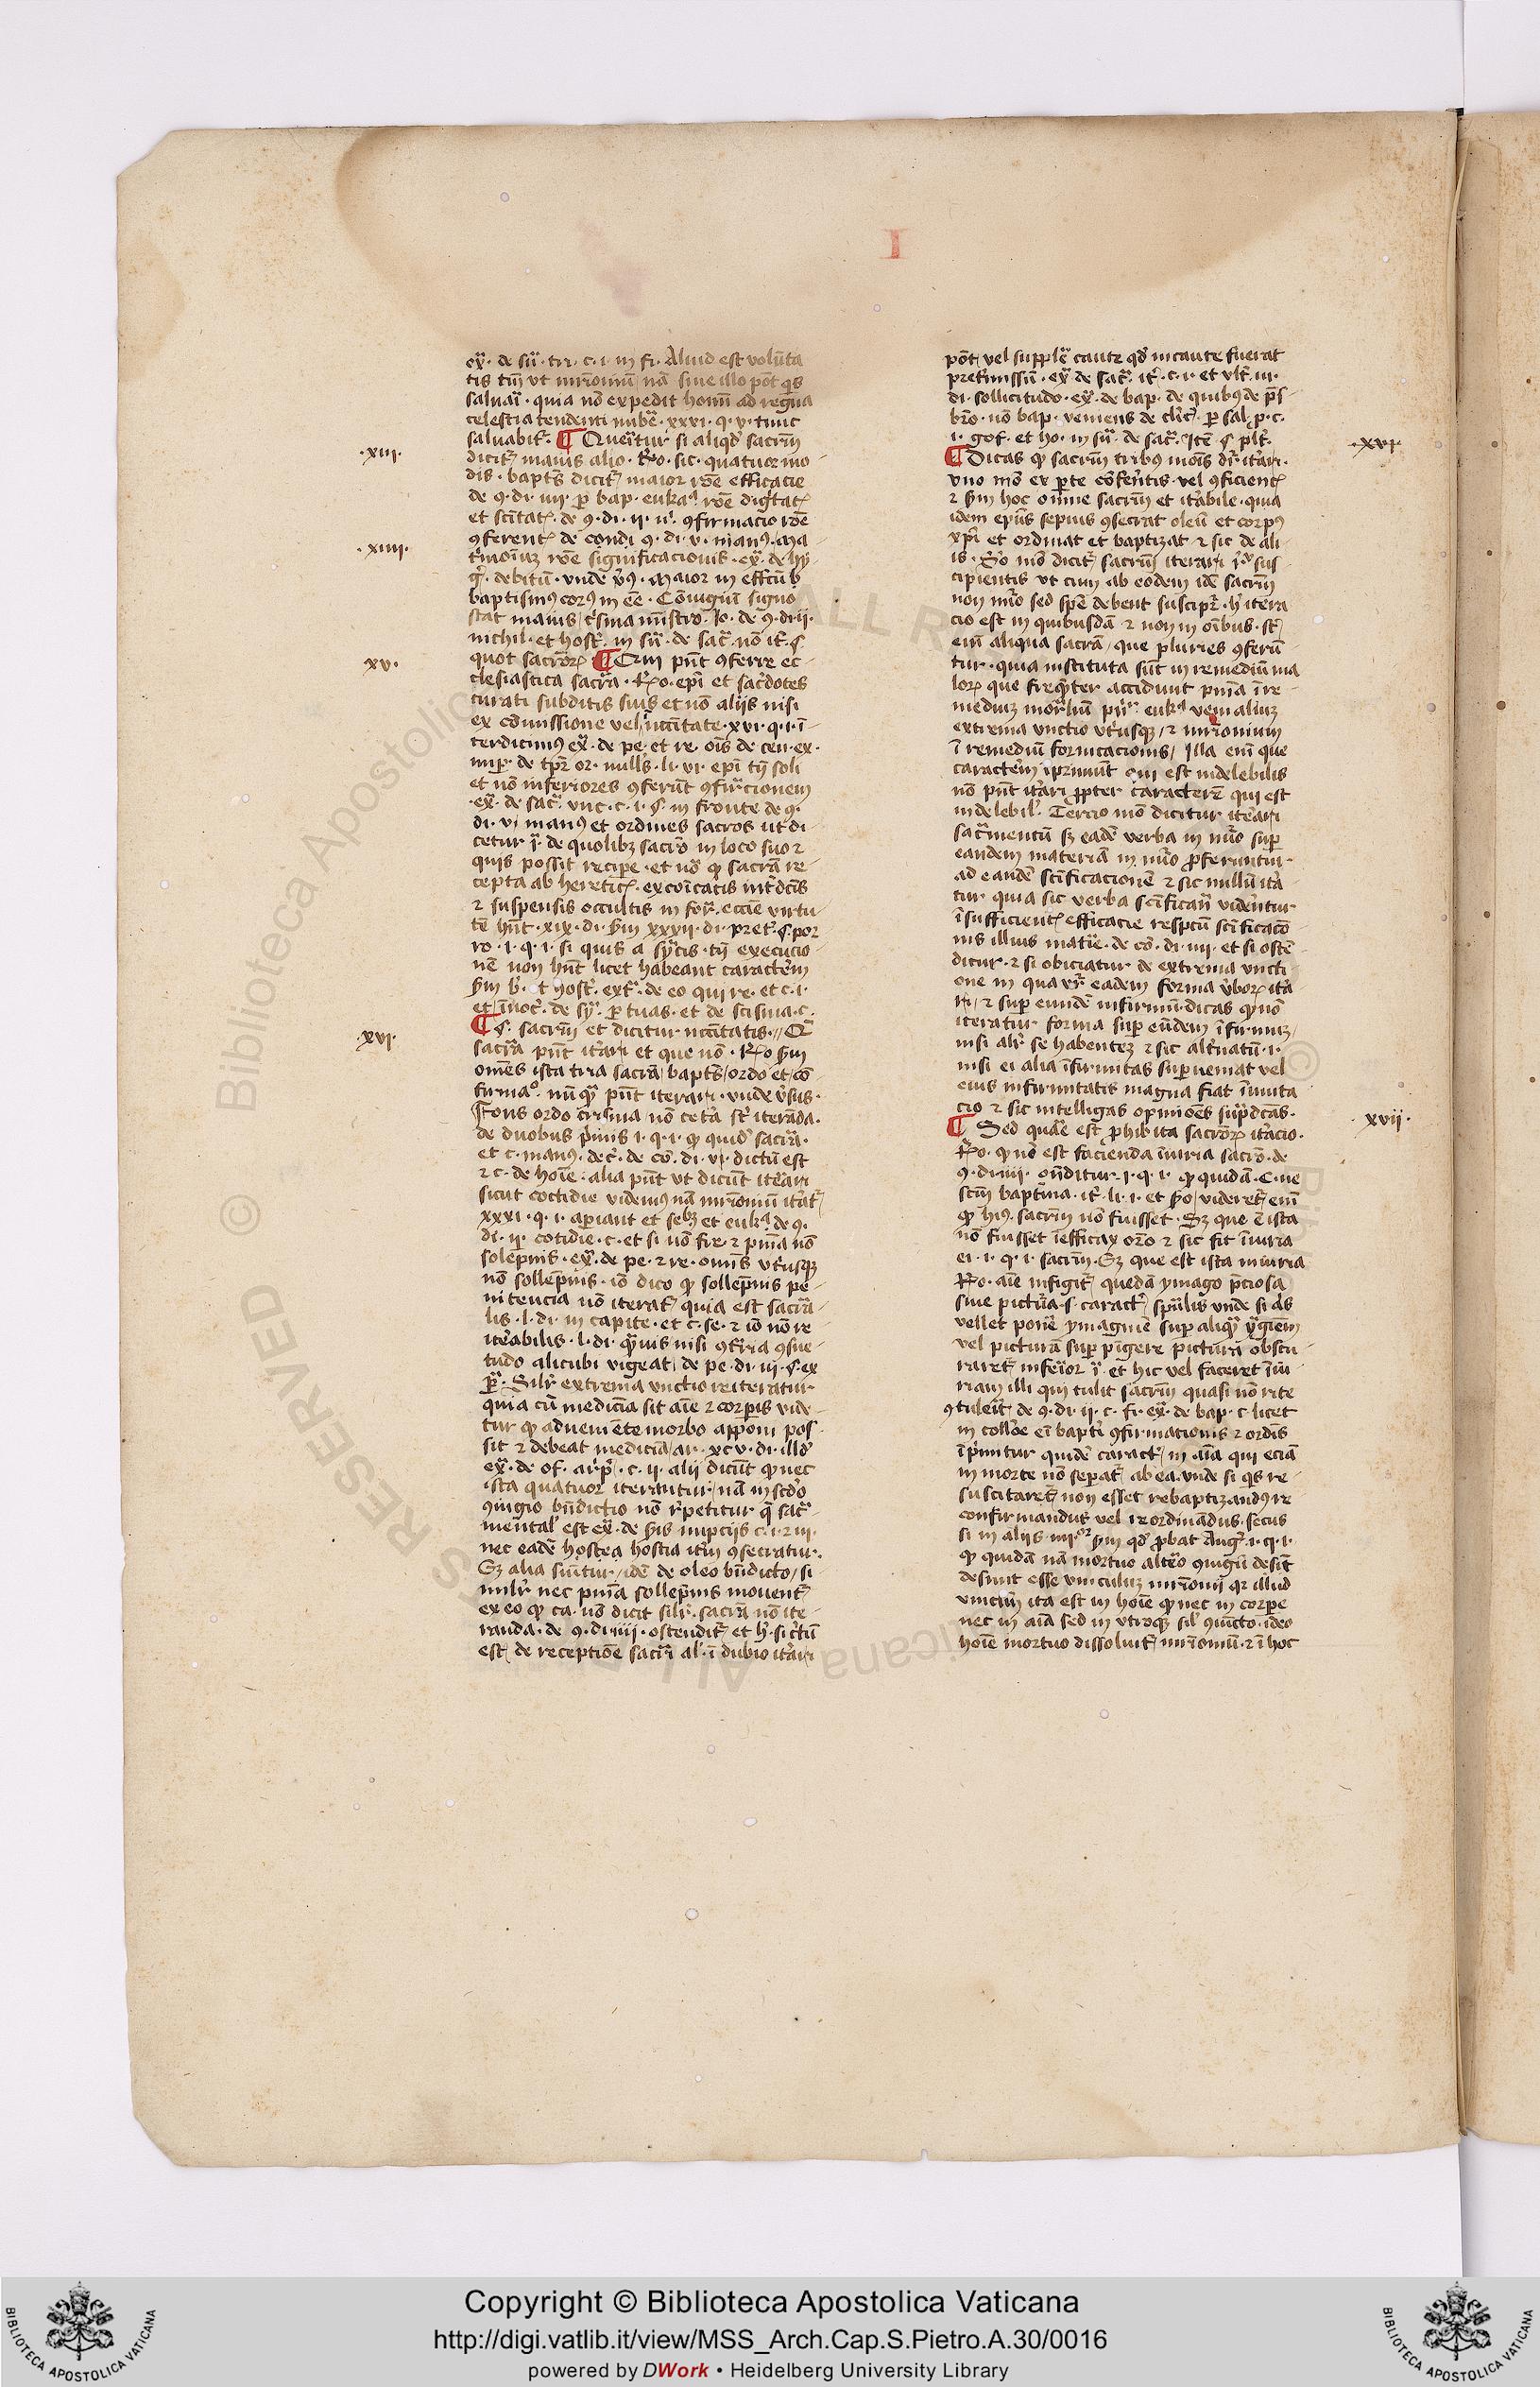 I
ex̄ · de sū · tri · c · i · in fi · Aliud est volūta
tis tm̄ ut mr̄ioniū nā sine illo pōt q̇s
saluari · quia nō expedit homī ad regna
celestia tendenti nubē · xxxi · q · v · tunc
saluabit᷑ · ¶ Querit᷑ur si aliqd̓ sacrm̄
·xiii·
dicit᷑ maius alio · Rō · sic · quatuor mo
dis · baptꝰ dicit᷑ maior rōe efficacie
de ꝯ · di · iiii · ꝑ bap · euka rōe dig̓tatꝭ
et scītatꝭ · de ꝯ · di · ii · ꝯfirmacio rōe
ꝯferentꝭ de condi ꝯ · di · v · manꝰ · Ma
·xiiii·
t̓moīuz rōe significacionis · ex̄ · de
debitū · vnde v̓ꝰ · Maior in effcū
baptismꝰ corꝰ in ēe · Cōiugiū signo
stat maius c̓sma mīstro · Jo · de ꝯ · di · ii ·
nichil · et host̓ · in sū · de sac̓ · nō it̓ · §
quot sacr̄oꝝ ¶ Qui pn̄t ꝯferre ec-
·xv·
clesiastica sacr̄a · Rō · epī et sac̓dotes
curati subditis suis et nō aliis nisi
ex cōmissione vel nccītate · xvi · q · i · ī-
terdicimꝰ ex̄ · de pe · et re · oīs de cen · ex ·
nup̄ · de tpr̄ or · nullꝰ · li · vi · epī tm̄ soli
et nō inferiores ꝯferūt ꝯfirm̄cionem
· ex̄ · de sac̓ · vnc · c · i · § · in fronte de ꝯ ·
di · v · manꝰ et ordines sacros ut di
cetur ī · de quolibꝫ sacr̄o in loco suo ⁊
quis possit recipe · et nō ꝙ sacrā re-
cepta ab hereticꝭ · excōicatis int̓dcīs
⁊ suspensis occultis in for̄ · ecclīe virtu-
tē hn̄t · xix · di · sm̄ xxxii · di · pret̓ · § · por
ro · i · q · i · si quis a sȳcis · tm̄ execucio
nē non hn̄t licet habeant carac̓tem
sm̄ b̓ · et host̓ · ext̓ · de eo qui re · et c · i ·
et īnoc̓ · de sȳ · ꝑ tuas · et de scisma · c ·
¶ § · sacrm̄ et dicitur nccītatis · // Q̄
·xvi·
sacr̄a pn̄t it̓ari et que nō · Rō sm̄
omēs ista tria sacrā / baptꝰ / ordo et cō-
firmao · nūq̄ pn̄t iterari · vnde v̓sus ·
Fons ordo crisma nō cet̓a st̓ iterāda ·
de duobus p̓mis · i · q · i · ꝙ quid̓ sacr̄a ·
et c · manꝰ · dec̓ · de cō · di · vi · dictū est
⁊ c · de hoīe · alia pn̄t ut dicūt iterari
sicut coctidie videmꝰ nā mr̄ioniū it̓at᷑
xxxi · q · i · apiant et seqꝫ et euka de ꝯ ·
di · ii · cotidie · c · et si nō fie · ⁊ pnīa nō
solepnis · ex̄ · de pe · ⁊ re · omīs vt̓usqꝫ
nō sollepnis · iō dico ꝙ sollepnis pe-
nitencia nō iterat᷑ quia est sacr̄a-
lis · l · di · in capite · et c · se · ⁊ iō nō re
iterabilis · l · di · q̄uis nisi ꝯtr̄ia ꝯsue-
tudo alicubi vigeat / de pe · di · iii · § · ex
p̄ · Silr̄ extrema vnctio reiteratur
quia cū medicīa sit aīe ⁊ corpis vide-
tur ꝙ adueniēte morbo apponi pos-
sit ⁊ debeat medicīa / ar · xcv · di · illd̓
ex̄ · de of · arp̄ · c · ii · alii dicūt ꝙ nec
ista quatuor iterantur / nā in scd̓o
ꝯiugio bn̄dictio nō repetitur q̄ sac̓-
mental̓ est ex̄ · de scīs nupciis c · i · ⁊ iii ·
nec eadē hostea hostia it̓m ꝯsecratur ·
Sꝫ alia sūtur / idē de oleo bn̄dicto / si
milr̄ nec pnīa sollepnis mouent᷑
ex eo ꝙ ca · nō dicit silr̄ · sacrā nō ite-
randa · de ꝯ · di · iiii · ostendit᷑ et h̓ · si c̓tū
est / de receptiōe sacrī al̓ · ī dubio it̓ari
pōt / vel supplē caute qd̓ incaute fuerat
pret̓missū · ex̄ · de sac̓ · it̓ · c · i · et vlt̓ · iii ·
di · sollicitudo · ex̄ · de bap · de quibꝰ de pr̄s-
br̄o · nō bap · veniens de cler̄ · ꝑ sal · p · c ·
i · gof · et ho · in sū · de sac̓ · itē · § plt̓ ·
·xvi·
¶ Dicas ꝙ sacrm̄ tribꝰ mōis dr̄ it̓ari ·
vno mō ex pte cōferētis · vel ꝯficientꝭ
⁊ sm̄ hoc omne sacrm̄ et it̓abile · quia
idem epūs sepius ꝯsecrat oleū et corpꝰ
xpī et ordinat et baptizat ⁊ sic de ali
is · Sō mō dicit᷑ sacrm̄ iterari r̄ sus-
cipientis vt cum ab eodem idē sacrm̄
non nūo sed spē debent suscipi · h̓ itera
cio est in quibusdā ⁊ non in oībus · st᷑
enī aliqua sacrā / que pluries ꝯferū-
tur · quia instituta sūt in remediū ma
loꝝ que freq̄ter accidunt pnīa ī re-
mediuz mortaliū · euka venialiuz
extrema vnctio vt̓usqꝫ / ⁊ mr̄ionium
ī remediū fornicacionis / illa enī que
caracterē īprimūt cui est indelebilis
nō pn̄t it̓ari ꝓpter caracterē qui est
indelebil̓ · Tercio mō dicitur iterari
sac̓mentū sꝫ eadē verba in nūo sup
eandem materiā in nūo ꝓferuntur ·
ad eandē scīficacionē ⁊ sic nullū it̓a-
tur quia sic verba scīficanī videntur
īsufficientꝭ efficacie respcū scīficacō-
nis illius mat̓ie · de cō · di · iiii · et si ostē
ditur · ⁊ si obiciatur de extrema vncti-
one in qua vr̄ eadem forma v̓boꝝ it̓a
ri / ⁊ sup eundē infirmū · dicas ꝙ nō
iteratur forma sup eūdem īfirmuz /
nisi alr̄ se habentez ⁊ sic alt̓natū · i ·
nisi ei alia īfirmitas superueniat vel
eius infirmitatis magna fiat īmuta
cio ⁊ sic intelligas opiniōes sup̓dcās ·
·xvii·
¶ Sed quare est ꝓhibita sacr̄oꝝ it̓acio ·
Rō · ꝙ nō est facienda īiuria sacr̄o · de
ꝯ · di · iiii · on̄ditur · i · q · i · ꝙ quidā · C · ne
scm̄ baptīma · it̓ · li · i · et sō / videret᷑ enī
ꝙ hꝰ · sacrm̄ nō fuisset · Sꝫ que ē ista
nō fuisset īefficax orō ⁊ sic fit īiuria
ei · i · q · i · sacrm̄ · Sꝫ que est ista iniuria
Rō · aīe infigit᷑ quedā ymago p̄ciosa
siue pictura · s · caract᷑ spūlis vnde si q̇s
vellet ponē ymaginē sup aliq̄ ymaginem
vel picturā sup pīgere picturā obscu-
raret᷑ inferior ī · et hic vel faceret īiu-
riam illi qui tulit sacrm̄ quasi nō rite
ꝯtulerit · de ꝯ · di · ii · c · fi · ex̄ · de bap · c · licet
in collōe enī baptī ꝯfirmationis ⁊ ordīs
īp̓mitur quidē caract᷑ / in aīa qui eciā
in morte nō sepat᷑ ab ea · vnde si q̇s re-
suscitaret᷑ non esset rebaptizandꝰ re-
confirmandus vel reordinādus · secus
si in aliis iiiior sm̄ qd̓ ꝓbat Aug̓ · i · q · i ·
ꝙ quidā nā mortuo alt̓o ꝯiugū desīt
desiunt esse vinculuz mr̄ionii qr̄ illud
vinc̄lm ita est in hoīe ꝙ nec in corpe
nec in aīa sed in vtroqꝫ sil̓ ꝯiūcto · ideo
hoīe mortuo dissoluit᷑ mr̄ioniū · ⁊ ī hoc
Copyright © Biblioteca Apostolica Vaticana
http://digi.vatlib.it/view/MSS_Arch.Cap.S.Pietro.A.30/0016
powered by DWork • Heidelberg University Library
BIBLIOTECA APOSTOLICA VATICANA
BIBLIOTECA APOSTOLICA VATICANA